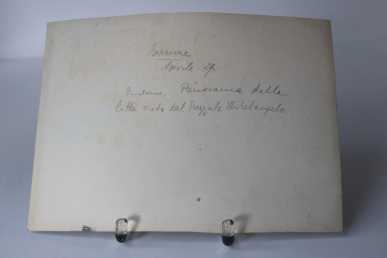 Firenze
Aprile 27
Panorama della
città visto dal Piazzale Michelangelo